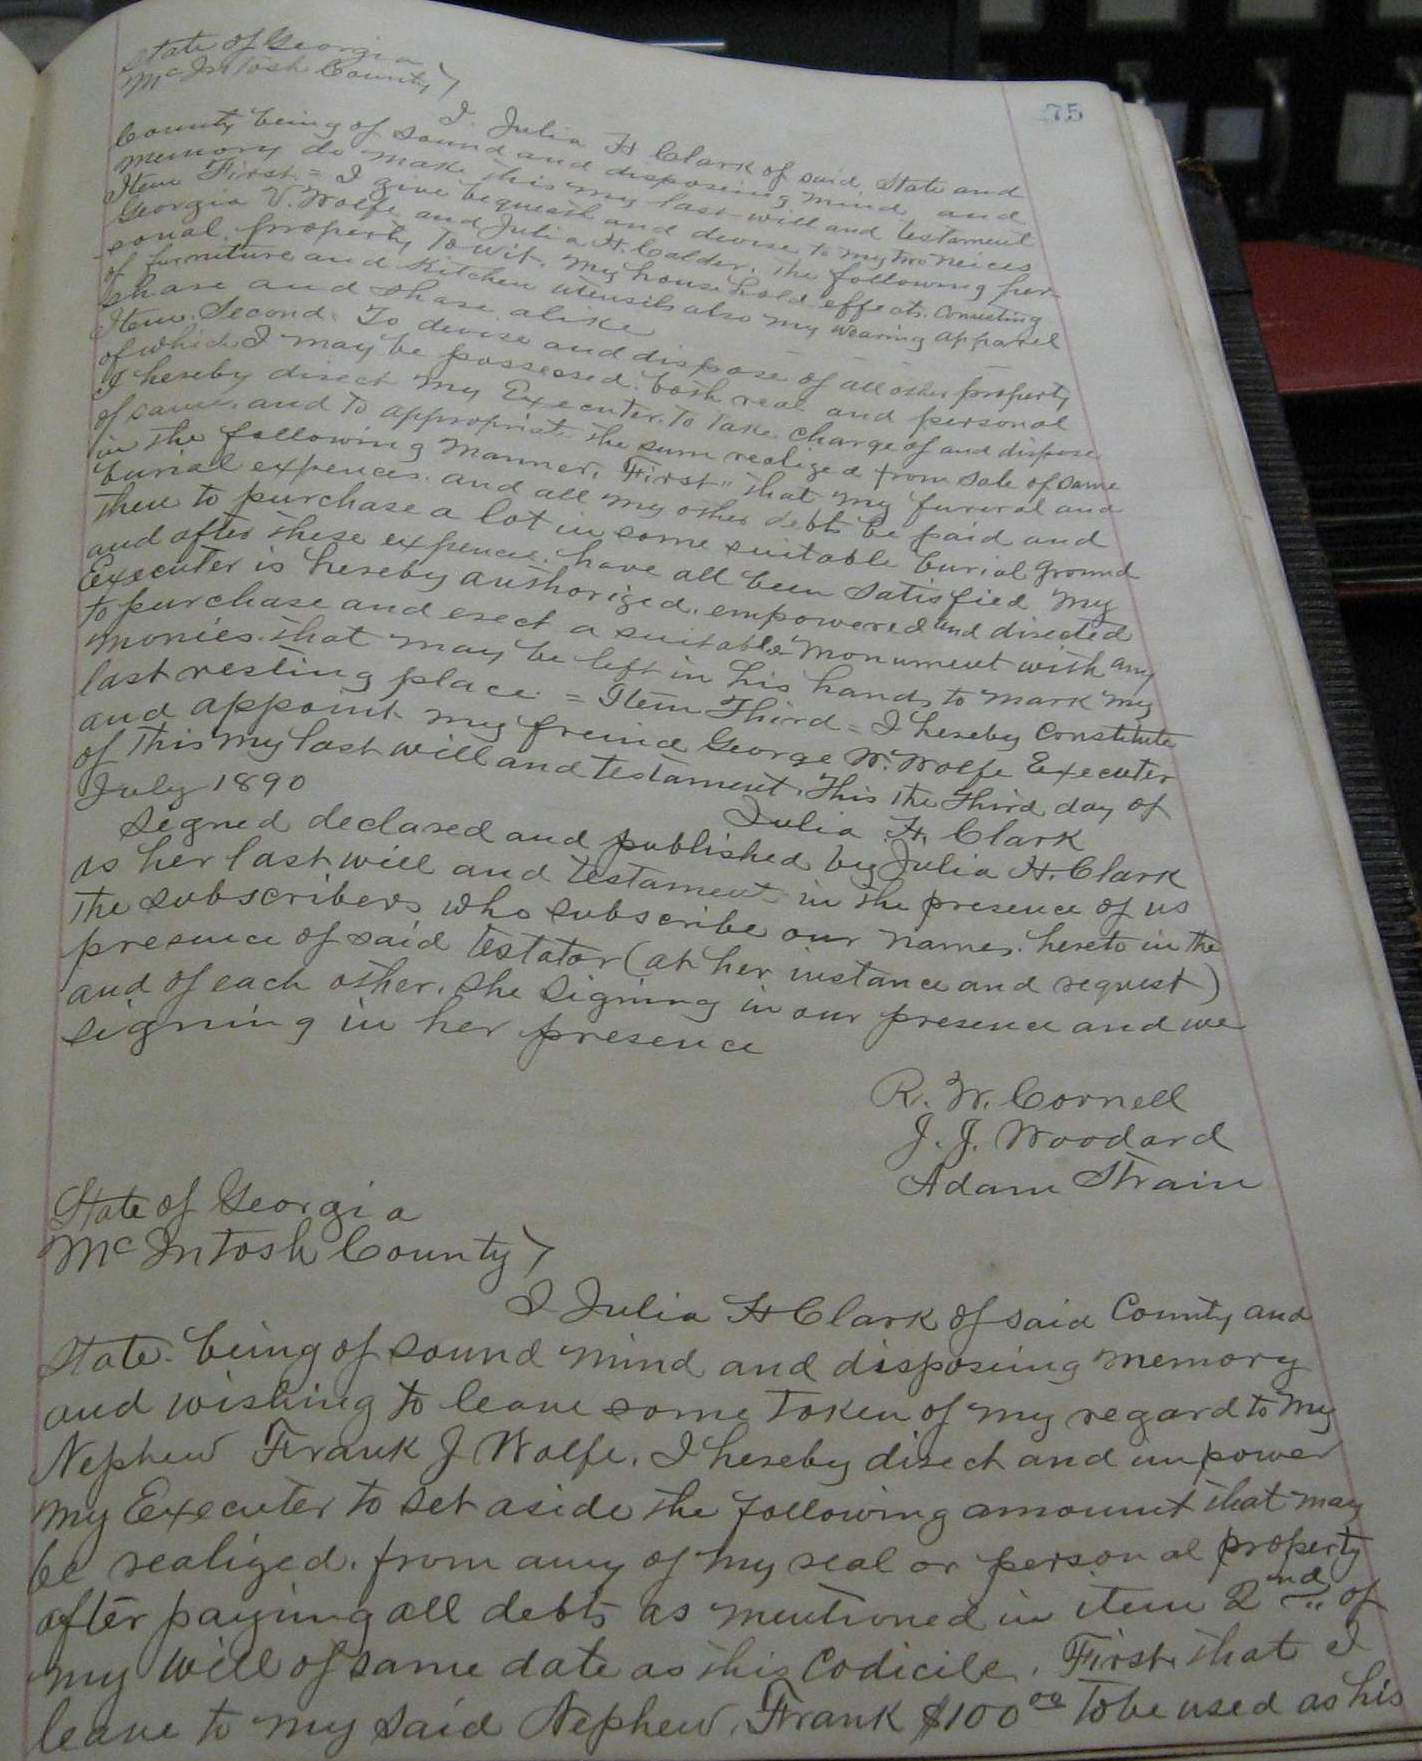 75
State of Georgia
McIntosh County
I. Julia H Clark of said. State and
County being of sound and disposing mind and
memory do make this my last will and testament
Item First = I give bequeath and devise to my two neices
Georgia V. Wolfe and Julia H. Calder. The following per-
sonal property to wit. my household effects. Consisting
of furniture and Kitchen utensils also my wearing apparel
share and share alike
Item. Second. To devise and dispose of all other property
of which I may be possessed. both real and personal
I hereby direct my Executer. to take charge of and dispose
of same. and to appropriate the sum realized from sale of same
in the following manner. First" that my funeral and
burial expences. and all my other debts be paid and
then to purchase a lot in some suitable burial ground
and after these expences. have all been satisfied my
Executer is hereby authorized. empowered and directed
to purchase and erect a suitable monument with any
monies that may be left in his hands to mark my
last resting place = Item Third = I hereby Constitute
and appoint my freind George W. Wolfe Executer
of this my last will and testament. This the Third day of
July 1890
Julia H. Clark
Signed declared and published by Julia H. Clark
as her last will and testament in the presence of us
the subscribers who subscribe our names. hereto in the
presence of said testator (at her instance and request)
and of each other. she signing in our presence and we
signing in her presence
R. W. Cornell
J. J. Woodard
Adam Strain
State of Georgia
McIntosh County
I Julia H Clark of said County and
State. being of sound mind and disposing memory
and wishing to leave some token of my regard to my
Nephew Frank J Wolfe. I hereby direct and unpower
my Executer to set aside the following amount that may
be realized. from any of my real or personal property
after paying all debts as mentioned in item 2nd of
my will of same date as this Codicile. First. that I
leave to my said Nephew. Frank $100 00 to be used as his